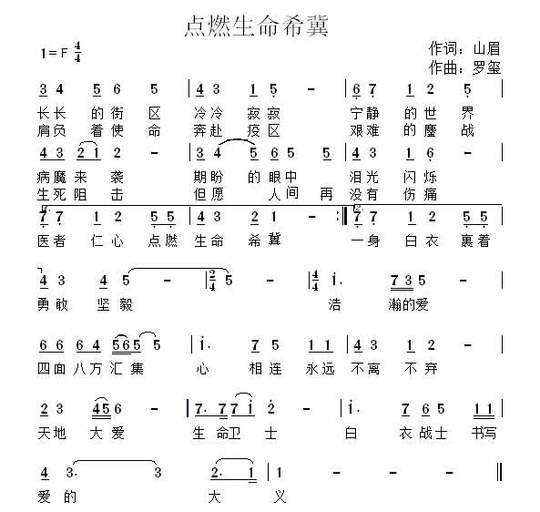 点燃生命希冀
1=F 4/4
作词：山眉
作曲：罗玺
3 4 5 6 5 | 4 3 1 5 - | 6 7 1 2 5 |
长长 的街 区 冷冷 寂寂 宁静 的世 界
肩负 着使 命 奔赴 疫区 艰难 的鏖 战
4 3 2 1 2 - | 3 4 5 6 5 | 4 3 1 6 - |
病魔来 袭 期盼 的眼中 泪光 闪烁
生死阻 击 但愿 人间 再 没有 伤痛
7 7 1 2 5 5 | 4 3 2 1 - :| 7 7 1 2 5 5 |
医者 仁心 点燃 生命 希 冀 一身 白衣 裹着
4 3 4 5 - | 2/4 5 - | 4/4 i. 7 3 5 - |
勇敢 坚毅 浩 瀚的爱
6 6 6 4 5 6 5 5 | i. 7 5 1 1 | 4 3 1 2 - |
四面 八方 汇集 心 相连 永远 不离 不弃
2 3 4 5 6 - | 7. 7 7 i 2 - | i. 7 6 5 1 1 |
天地 大爱 生 命卫 士 白 衣战士 书写
4 3. 3. 2. 1 | 1 - - - ||
爱 的 大 义